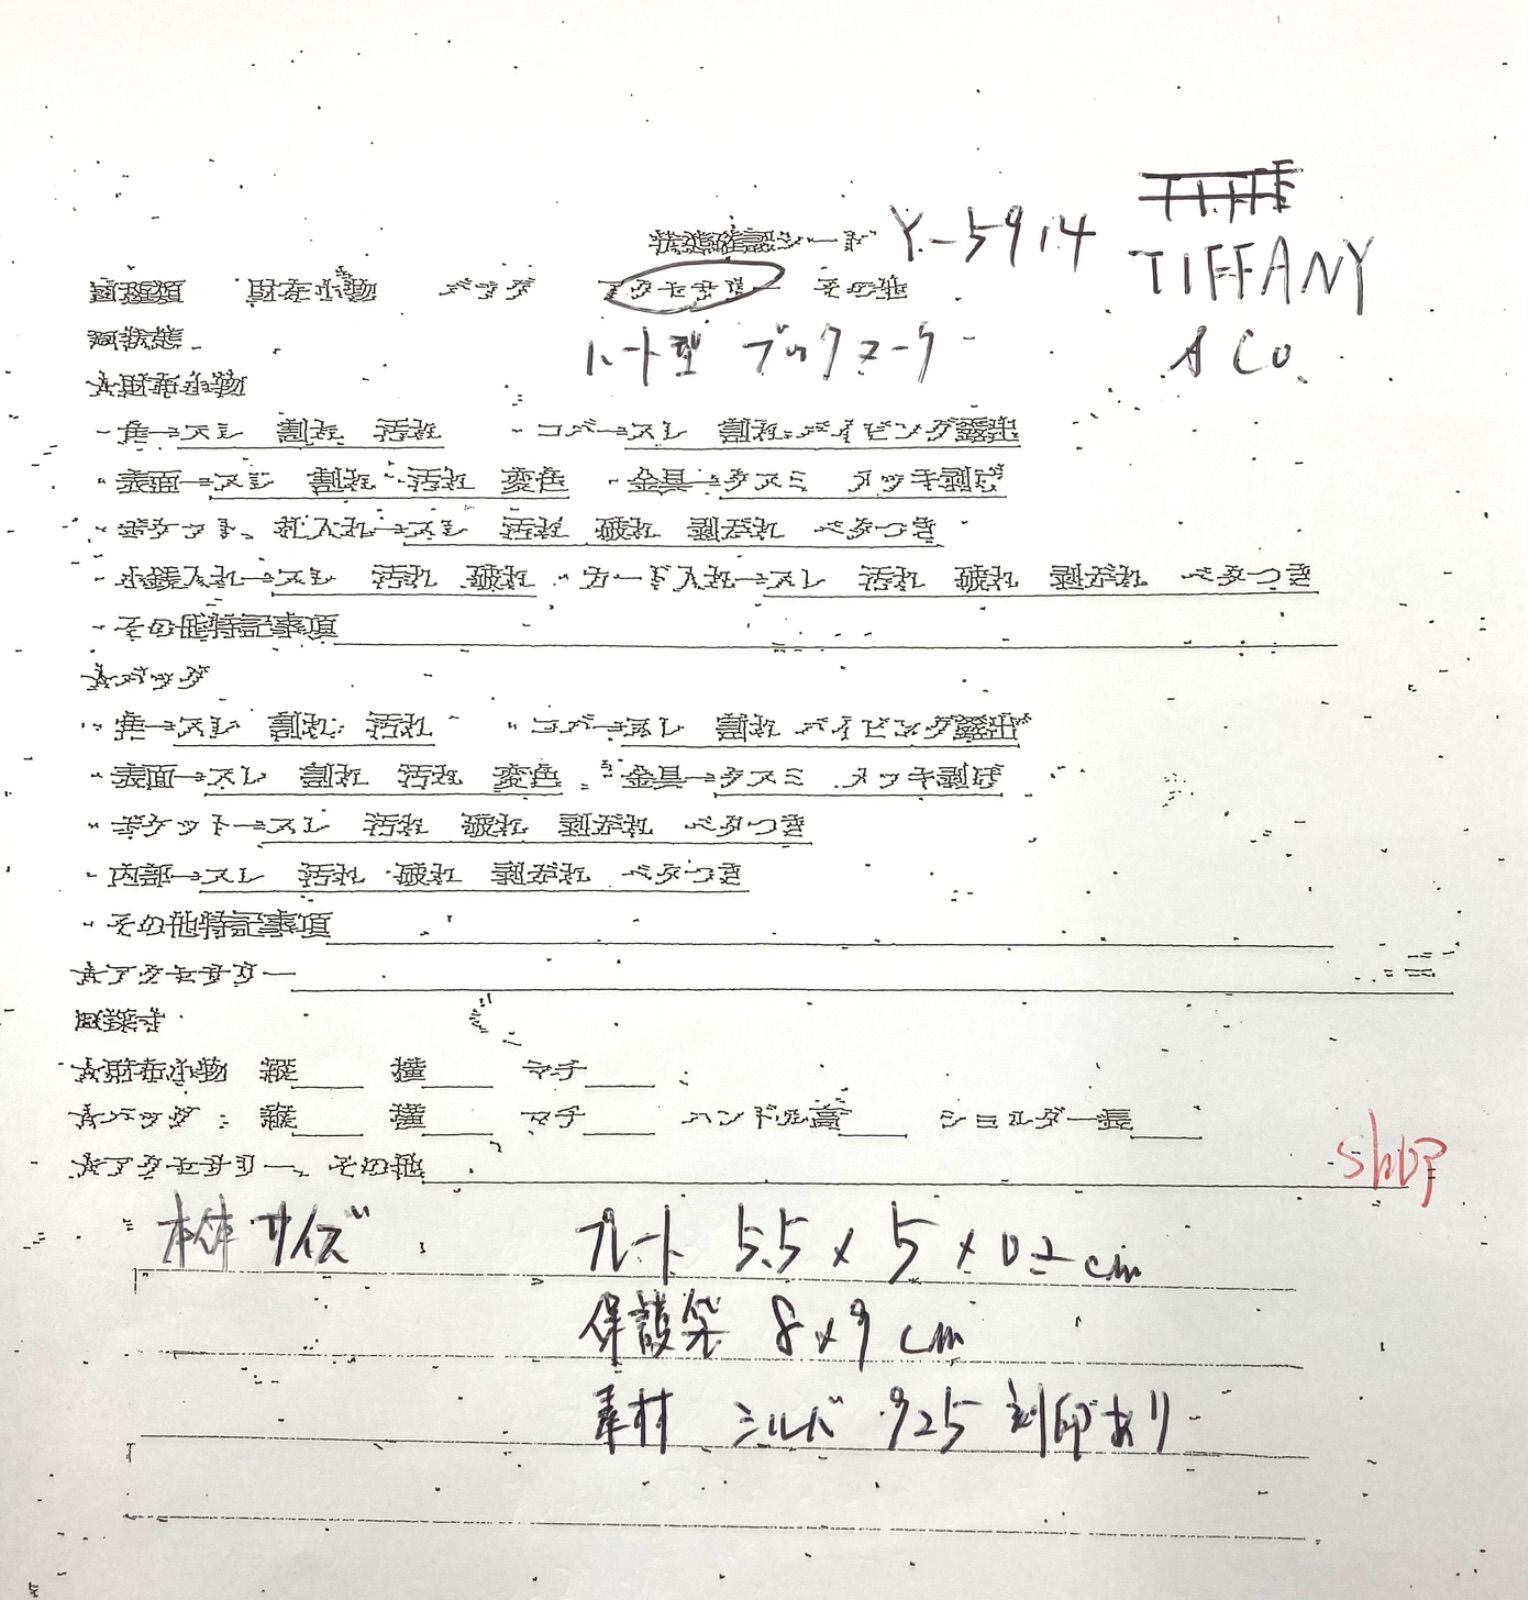 状態確認シート Y-5914
TIFFANY
& Co
■種類 財布小物 バッグ アクセサリー その他
■状態
ハート型 ブックマーク
★財布小物
・角→スレ 割れ 汚れ ・コバ→スレ 割れ パイピング露出
・表面→スレ 割れ 汚れ 変色 ・金具→クスミ メッキ剥げ
・ポケット、札入れ→スレ 汚れ 破れ 剥がれ ベタつき
・小銭入れ→スレ 汚れ 破れ ・カード入れ→スレ 汚れ 破れ 剥がれ ベタつき
・その他特記事項
★バッグ
・角→スレ 割れ 汚れ ・コバ→スレ 割れ パイピング露出
・表面→スレ 割れ 汚れ 変色 ・金具→クスミ メッキ剥げ
・ポケット→スレ 汚れ 破れ 剥がれ ベタつき
・内部→スレ 汚れ 破れ 剥がれ ベタつき
・その他特記事項
★アクセサリー
■採寸
★財布小物 縦 横 マチ
★バッグ 縦 横 マチ ハンドル高 ショルダー長
★アクセサリー、その他
shop
本体サイズ プレート 5.5 x 5 x 0.2 cm
保護袋 8 x 9 cm
素材 シルバ 925 刻印あり